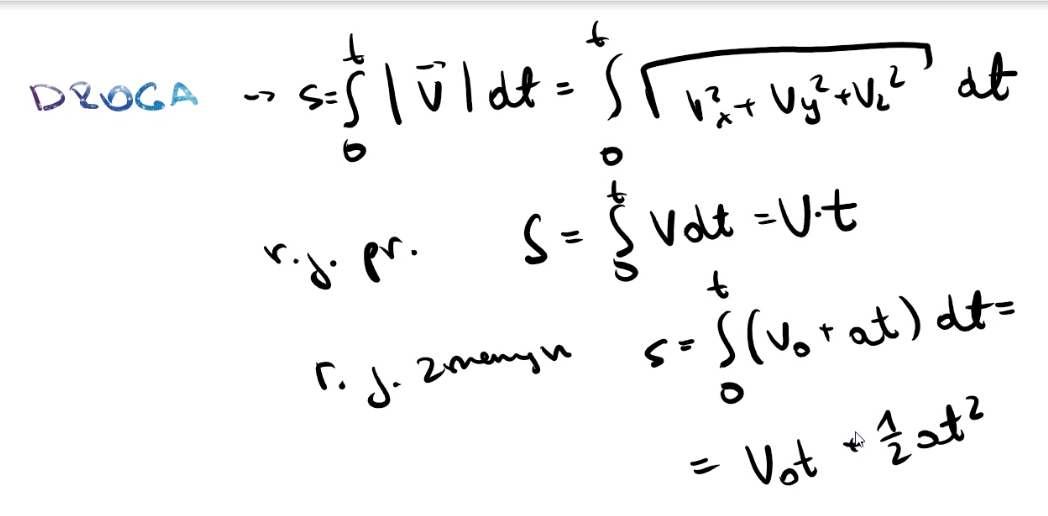 DROGA → s = ∫₀ᵗ |v⃗| dt = ∫₀ᵗ √(Vx² + Vy² + Vz²) dt
r.j. pr. S = ∫₀ᵗ V dt = V·t
r. j. zmennyn s = ∫₀ᵗ (V₀ + at) dt =
= V₀t + ½at²